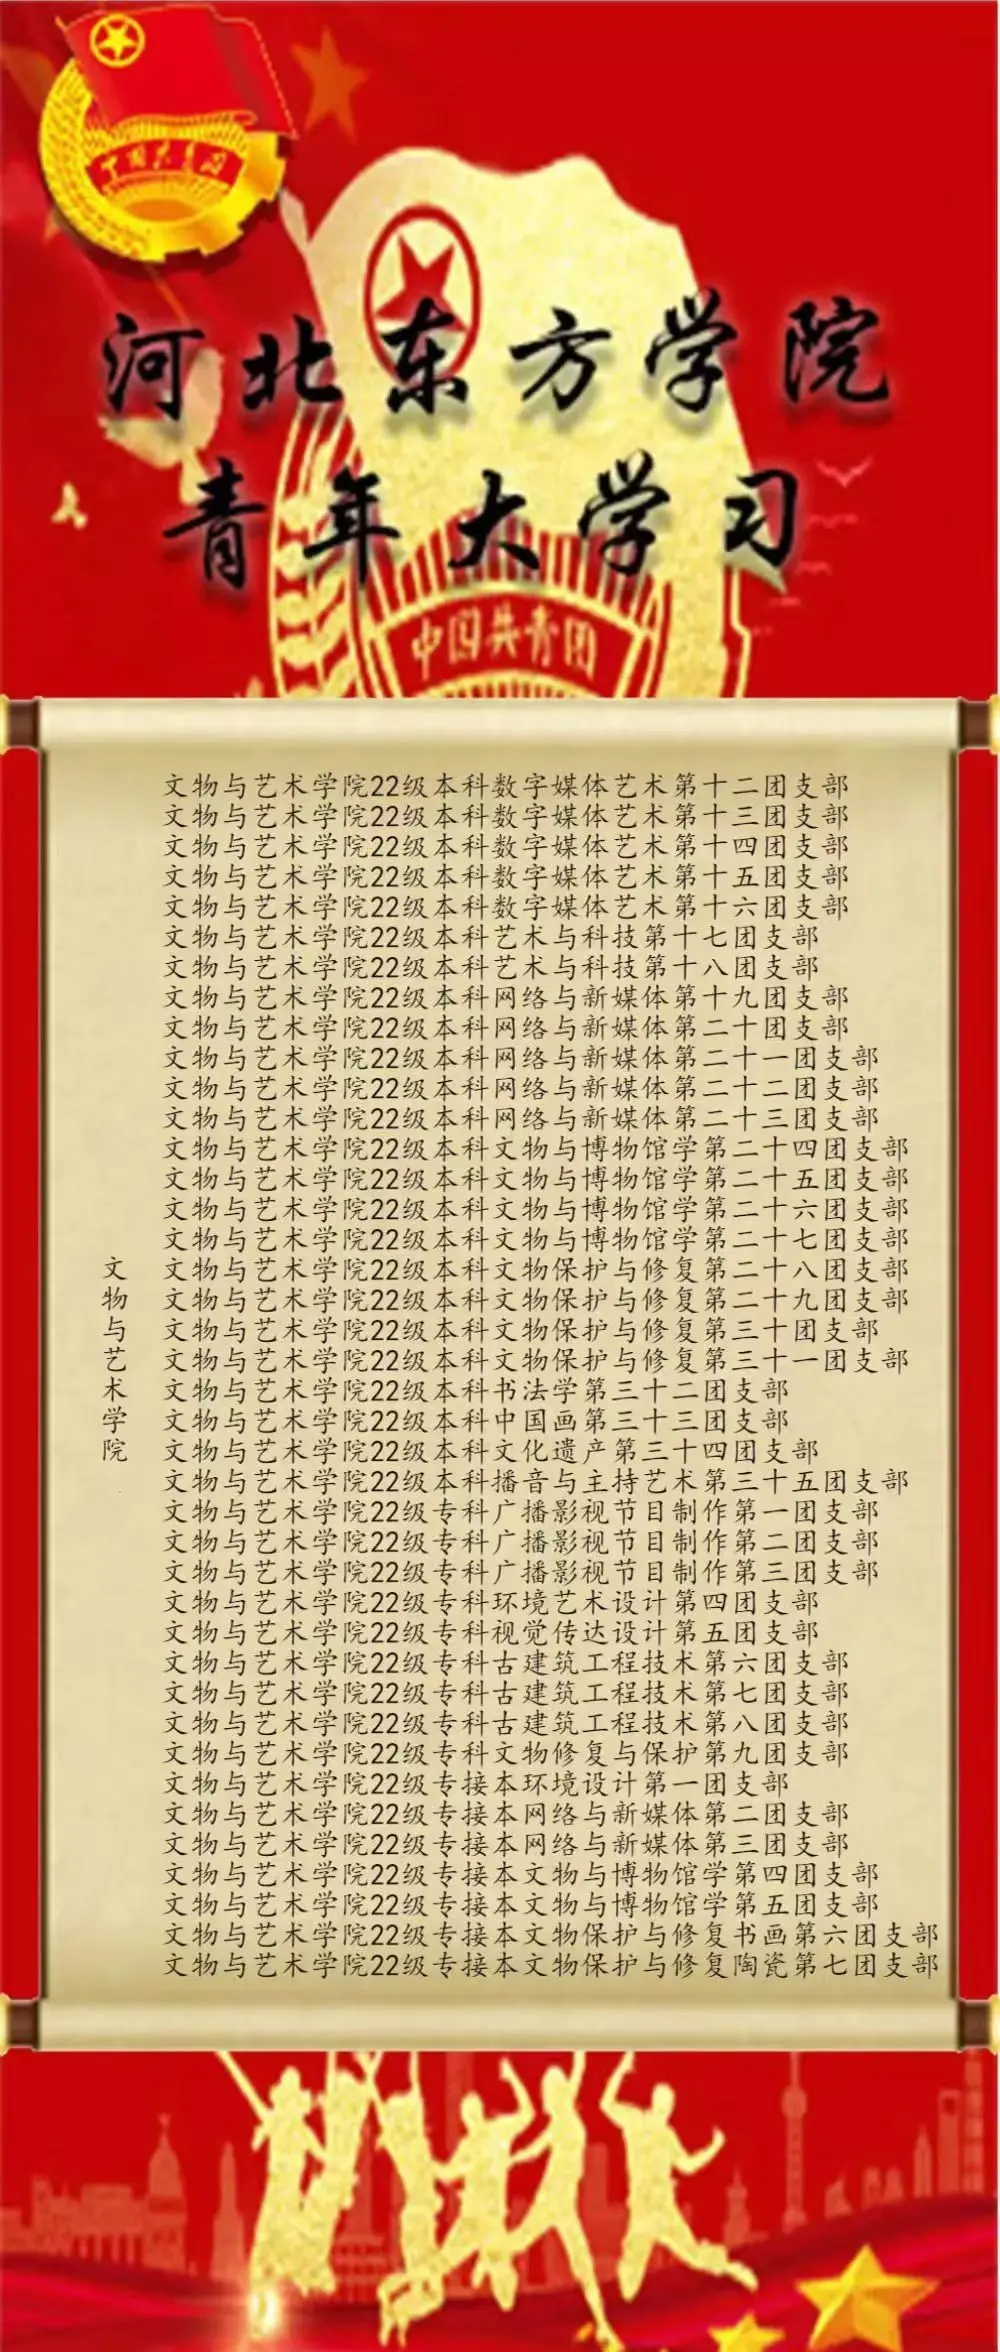 中国共青团
河北东方学院
青年大学习
中国共青团
文物与艺术学院
文物与艺术学院22级本科数字媒体艺术第十二团支部
文物与艺术学院22级本科数字媒体艺术第十三团支部
文物与艺术学院22级本科数字媒体艺术第十四团支部
文物与艺术学院22级本科数字媒体艺术第十五团支部
文物与艺术学院22级本科数字媒体艺术第十六团支部
文物与艺术学院22级本科艺术与科技第十七团支部
文物与艺术学院22级本科艺术与科技第十八团支部
文物与艺术学院22级本科网络与新媒体第十九团支部
文物与艺术学院22级本科网络与新媒体第二十团支部
文物与艺术学院22级本科网络与新媒体第二十一团支部
文物与艺术学院22级本科网络与新媒体第二十二团支部
文物与艺术学院22级本科网络与新媒体第二十三团支部
文物与艺术学院22级本科文物与博物馆学第二十四团支部
文物与艺术学院22级本科文物与博物馆学第二十五团支部
文物与艺术学院22级本科文物与博物馆学第二十六团支部
文物与艺术学院22级本科文物与博物馆学第二十七团支部
文物与艺术学院22级本科文物保护与修复第二十八团支部
文物与艺术学院22级本科文物保护与修复第二十九团支部
文物与艺术学院22级本科文物保护与修复第三十团支部
文物与艺术学院22级本科文物保护与修复第三十一团支部
文物与艺术学院22级本科书法学第三十二团支部
文物与艺术学院22级本科中国画第三十三团支部
文物与艺术学院22级本科文化遗产第三十四团支部
文物与艺术学院22级本科播音与主持艺术第三十五团支部
文物与艺术学院22级专科广播影视节目制作第一团支部
文物与艺术学院22级专科广播影视节目制作第二团支部
文物与艺术学院22级专科广播影视节目制作第三团支部
文物与艺术学院22级专科环境艺术设计第四团支部
文物与艺术学院22级专科视觉传达设计第五团支部
文物与艺术学院22级专科古建筑工程技术第六团支部
文物与艺术学院22级专科古建筑工程技术第七团支部
文物与艺术学院22级专科古建筑工程技术第八团支部
文物与艺术学院22级专科文物修复与保护第九团支部
文物与艺术学院22级专接本环境设计第一团支部
文物与艺术学院22级专接本网络与新媒体第二团支部
文物与艺术学院22级专接本网络与新媒体第三团支部
文物与艺术学院22级专接本文物与博物馆学第四团支部
文物与艺术学院22级专接本文物与博物馆学第五团支部
文物与艺术学院22级专接本文物保护与修复书画第六团支部
文物与艺术学院22级专接本文物保护与修复陶瓷第七团支部